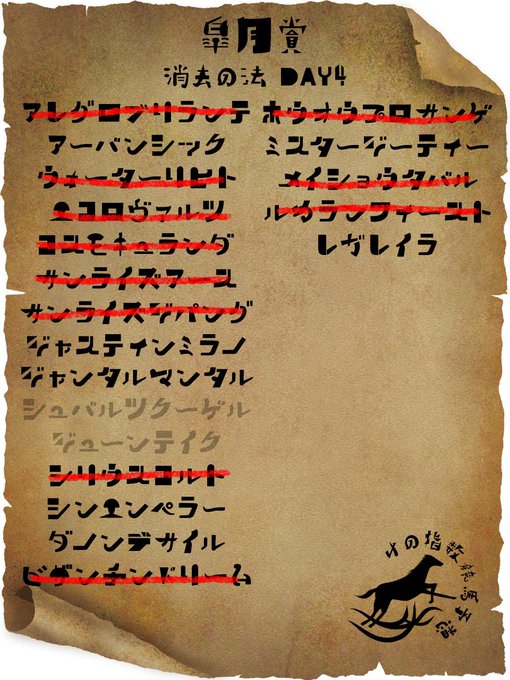 皐月賞
消去の法 DAY4
アレグロブリランテ
アーバンシック
ウォーターリヒト
エコロヴァルツ
コスモキュランダ
サンライズアース
サンライズジパング
ジャスティンミラノ
ジャンタルマンタル
シュバルツクーゲル
ジューンテイク
シリウスコルト
シンエンペラー
ダノンデサイル
ビザンチンドリーム
ホウオウプロサンゲ
ミスタージーティー
メイショウタバル
ルカランフィースト
レガレイラ
Kの指数競馬予想